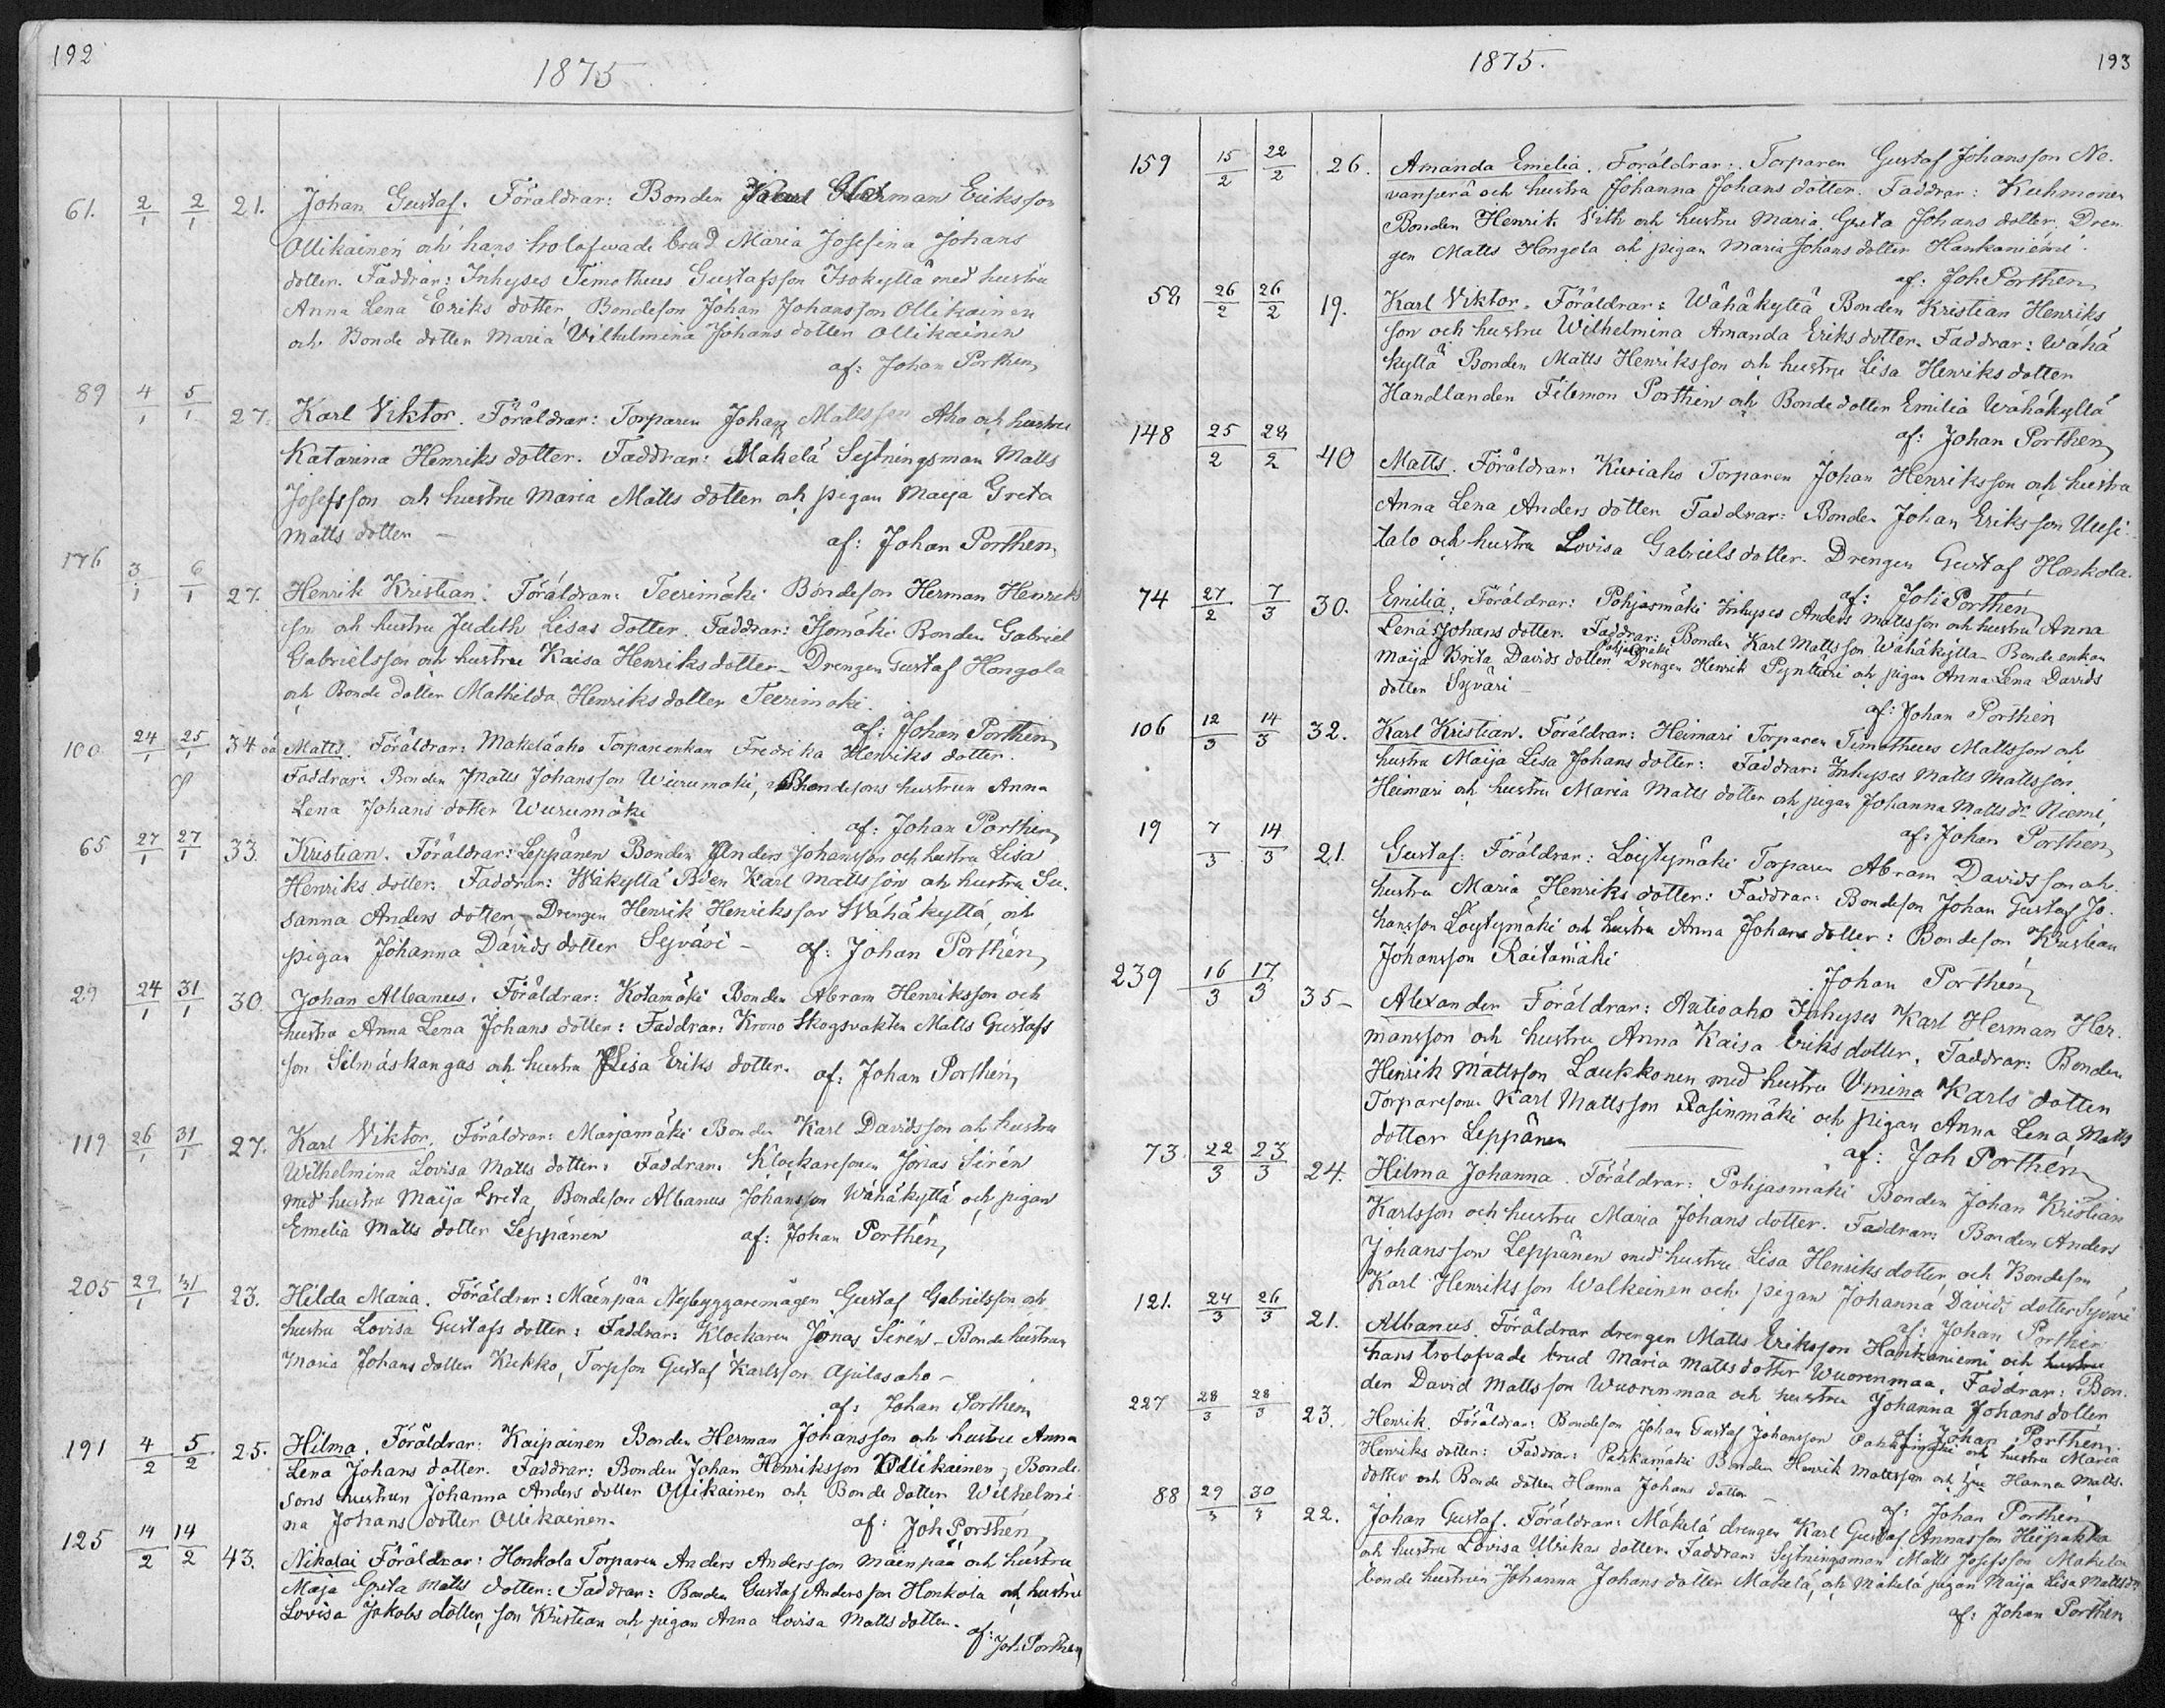 192
1875
61. 2/1 2/1 21. Johan Gustaf. Föräldrar: Bonden Hermans Eriksson
Ollikainen och hans trolofwade brud Maria Josefina Johans
dotter. Faddrar: Inhyses Timotheus Gustafsson Isokyttä med hustru
Anna Lena Eriks dotter, Bondeson Johan Johansson Ollikainen
och Bonde dotter Maria Vilhelmina Johans dotter Ollikainen
af: Johan Porthen
89 4/1 5/1 27. Karl Viktor. Föräldrar: Torparen Johan Mattsson Aho och hustru
Katarina Henriks dotter. Faddrar: Makelä Sejtningsman Matts
Josefsson och hustru Maria Matts dotter och pigan Maija Greta
Matts dotter –
af: Johan Porthen,
176 3/1 6/1 27. Henrik Kristian. Föräldrar: Teerimäki Bondeson Herman Henriks
son och hustru Judith Lisas dotter. Faddrar: Isomäki Bonden Gabriel
Gabrielsson och hustru Kaisa Henriksdotter – Drengen Gustaf Hongola
och Bonde dotter Mathilda Henriksdotter Teerimäki.
af: Johan Porthen
100 24/1 25/1 34 oä Matts. Föräldrar: Makeläaho Torpareenkan Fredrika Henriks dotter.
Faddrar: Bonden Matts Johansson Wuorumäki, Bondesons hustrun Anna
Lena Johans dotter Wuorumäki
af: Johan Porthen
65 27/1 27/1 33. Kristian. Föräldrar: Leppänen Bonden Anders Johansson och hustru Lisa
Henriks dotter. Faddrar: Wäkyttä Bden Karl Mattsson och hustru Su.
sanna Anders dotter – Drengen Henrik Henriksson Wähäkyttä och
pigan Johanna Davids dotter Syväri – af: Johan Porthen,
29 24/1 31/1 30. Johan Albanus. Föräldrar: Kotamäki Bonden Abram Henriksson och
hustru Anna Lena Johans dotter: Faddrar: Krono Skogsvakten Matts Gustafs
son Silmäskangas och hustru Lisa Eriks dotter. af: Johan Porthen,
119 26/1 31/1 27. Karl Viktor. Föräldrar: Marjamäki Bonden Karl Davidsson och hustru
Wilhelmina Lovisa Matts dotter: Faddrar: Klockaresonen Jonas Sirén
med hustru Maija Greta, Bondeson Albanus Johansson Wähäkyttä och pigan
Emelia Matts dotter Leppänen af: Johan Porthén,
205 29/1 31/1 23. Hilda Maria. Föräldrar: Mäenpää Nybyggaremågen Gustaf Gabrielsson och
hustru Lovisa Gustafs dotter: Faddrar: Klockaren Jonas Sirén – Bonde hustrun
Maria Johans dotter Kukko, Torpson Gustaf Karlsson Ajilasaho –
af: Johan Porthen
191 4/2 5/2 25. Hilma. Föräldrar: Kaipainen Bonden Herman Johansson och hustru Anna
Lena Johans dotter. Faddrar: Bonden Johan Henriksson Ollikainen, Bonde
sons hustrun Johanna Anders dotter Ollikainen och Bonde dotter Wilhelmi
na Johans dotter Ollikainen. af: Joh Porthén
125 14/2 14/2 43. Nikolai Föräldrar: Honkola Torparen Anders Andersson Mäenpää och hustru
Maja Greta Matts dotter: Faddrar: Bonden Gustaf Andersson Honkola och hustru
Lovisa Jakobs dotter, son Kristian och pigan Anna Lovisa Matts dotter.
af: Joh. Porthen
1875.
193
159 15/2 22/2 26. Amanda Emelia. Föräldrar: Torparen Gustaf Johansson Ne.
vanperä och hustru Johanna Johans dotter. Faddrar: Kuhmonen
Bonden Henrik Vith och hustru Maria Greta Johans dotter, Dren
gen Matts Hongola och pigan Maria Johans dotter Hankaniemi
af: Joh Porthen
58 26/2 26/2 19. Karl Viktor. Föräldrar: Wähäkyttä Bonden Kristian Henriks
son och hustru Wilhelmina Amanda Eriks dotter. Faddrar: Wähä
kyttä Bonden Matts Henriksson och hustru Lisa Henriks dotter
Handlanden Filemon Porthén och Bonde dotter Emilia Wähäkyttä
af: Johan Porthen
148 25/2 28/2 40 Matts. Föräldrar: Kiviaho Torparen Johan Henriksson och hustru
Anna Lena Anders dotter Faddrar: Bonden Johan Eriksson Uusi
talo och hustru Lovisa Gabrielsdotter. Drengen Gustaf Honkola.
af: Joh Porthén
74 27/2 7/3 30. Emilia. Föräldrar: Pohjasmäki Inhyses Anders Mattsson och hustru Anna
Lena Johans dotter. Faddrar: Bonden Karl Mattsson Wähäkyttä – Bonde enkan
Maija Brita Davids dotter Drengen Henrik Pynttäri och pigan Anna Lena Davids
dotter Syväri –
af: Johan Porthén
106 12/3 14/3 32. Karl Kristian. Föräldrar: Heimari Torparen Timotheus Mattsson och
hustru Maija Lisa Johans dotter: Faddrar: Inhyses Matts Mattsson
Heimari och hustru Maria Matts dotter och pigan Johanna Matts dr Niemi
af: Johan Porthen,
19 7/3 14/3 21. Gustaf: Föräldrar: Löytymäki Torparen Abram Davidsson och
hustru Maria Henriks dotter: Faddrar: Bondeson Johan Gustaf Jo.
hansson Löytymäki och hustru Anna Johans dotter: Bondeson Kristian
Johansson Raitamäki
Johan Porthén
239 16/3 17/3 35 – Alexander Föräldrar: Autioaho Inhyses Karl Herman Her.
mansson och hustru Anna Kaisa Eriksdotter. Faddrar: Bonden
Henrik Mattsson Laukkonen med hustru Vmina Karls dotter
Torpareson Karl Mattsson Rasinmäki och pigan Anna Lena Matts
dotter Leppänen
af: Joh Porthén
73 22/3 23/3 24. Hilma Johanna. Föräldrar: Pohjasmäki Bonden Johan Kristian
Karlsson och hustru Maria Johans dotter. Faddrar: Bonden Anders
Johansson Leppänen med hustru Lisa Henriksdotter och Bondeson
Karl Henriksson Walkeinen och pigan Johanna Davids dotter Syväri
af: Johan Porthén
121. 24/3 26/3 21. Albanus. Föräldrar drengen Matts Eriksson Hankaniemi och hustru
hans trolofvade brud Maria Mattsdotter Wuorenmaa. Faddrar: Bon.
den David Mattsson Wuorenmaa och hustru Johanna Johans dotter
af: Johan Porthen.
227 28/3 28/3 23. Henrik. Föräldrar: Bondeson Johan Gustaf Johansson och hustru Maria
Henriks dotter: Faddrar: Pahkamäki Bonden Henrik Mattsson och Hanna Matts.
dotter och Bonde dotter Hanna Johans dotter –
af: Johan Porthén
88 29/3 30/3 22. Johan Gustaf. Föräldrar: Mäkelä drengen Karl Gustaf Annasson Hiipakka
och hustru Lovisa Ulrikas dotter. Faddrar: Sejtningsman Matts Josefsson Makelä
bonde hustrun Johanna Johans dotter Mäkelä, och Mäkelä pigan Maija Lisa Matts
af: Johan Porthén